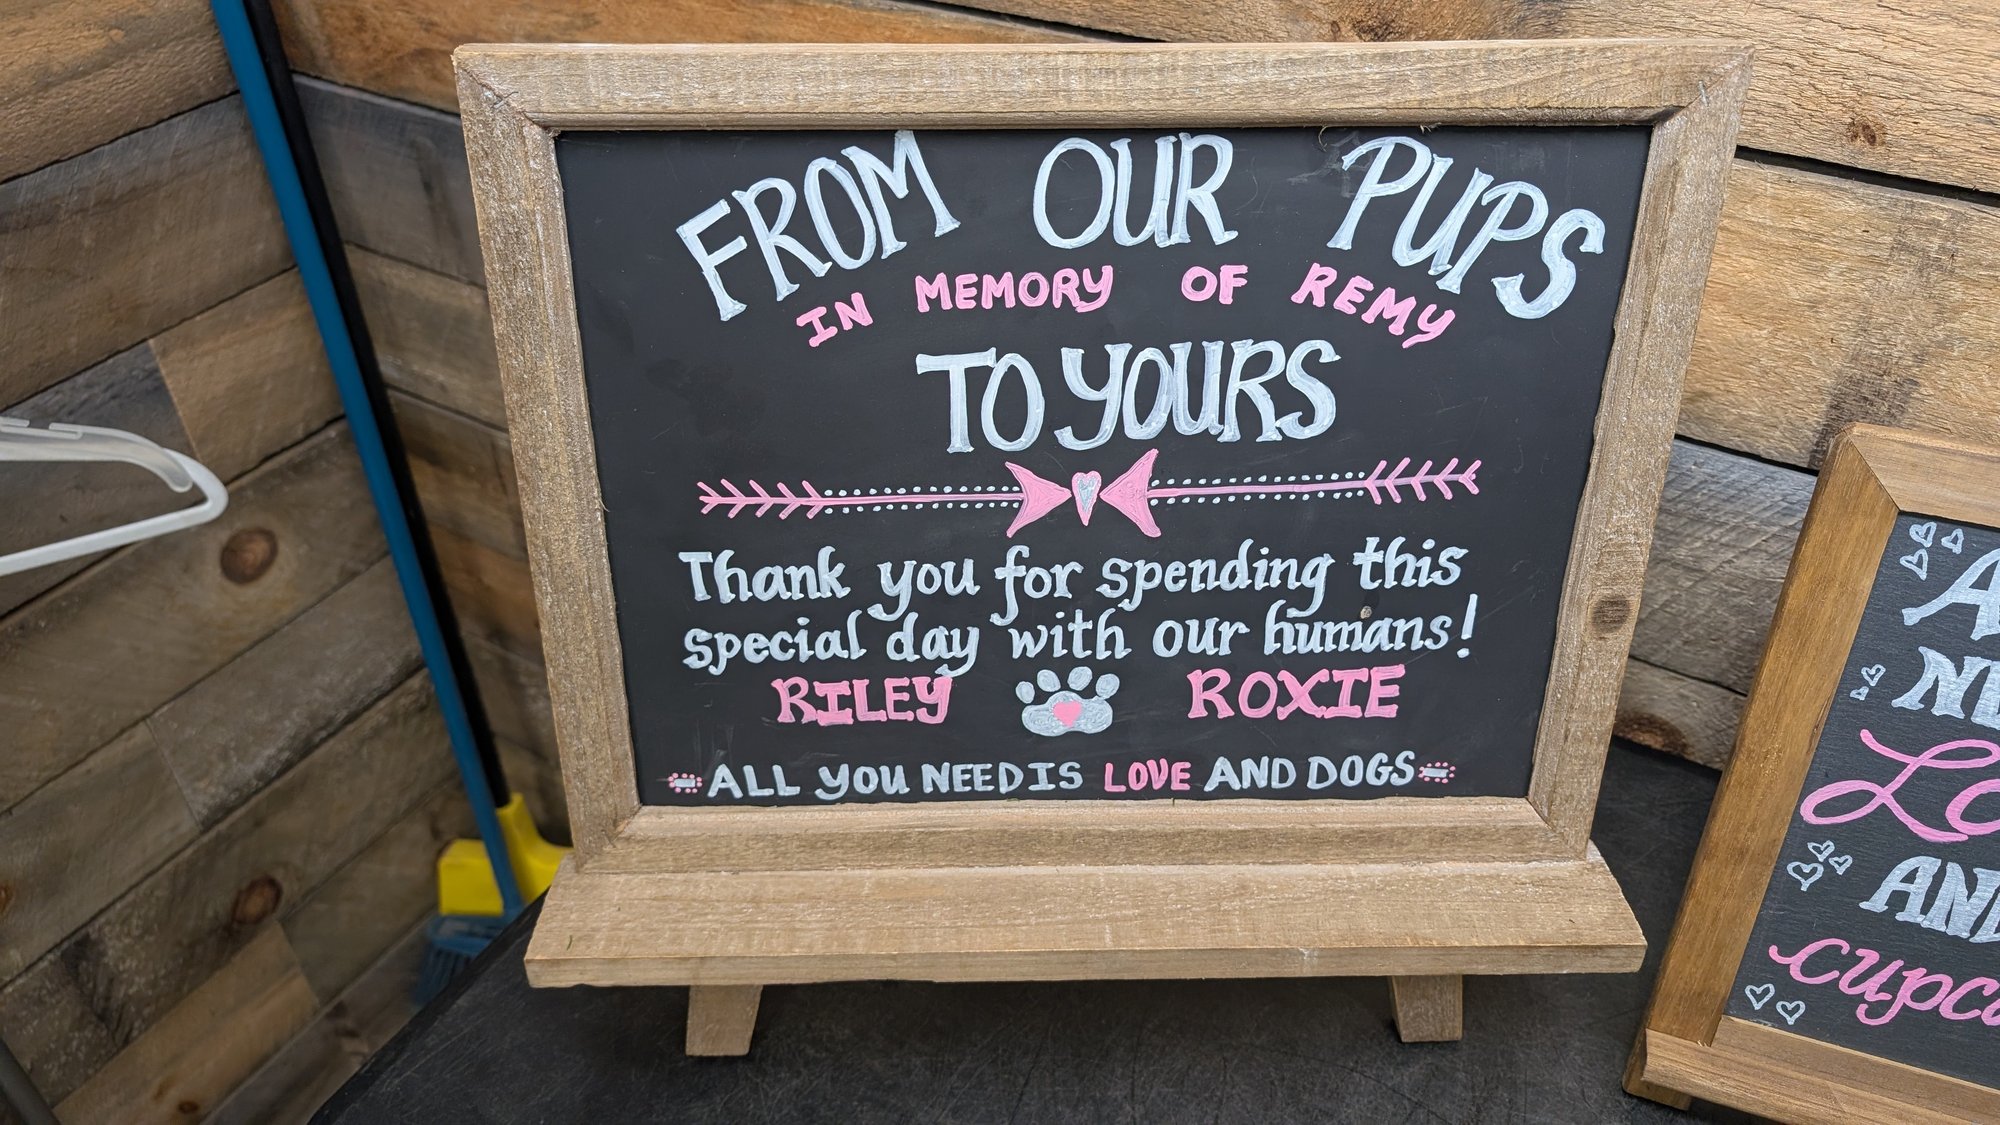 FROM OUR PUPS
IN MEMORY OF REMY
TO YOURS
Thank you for spending this
special day with our humans!
RILEY ROXIE
ALL YOU NEED IS LOVE AND DOGS